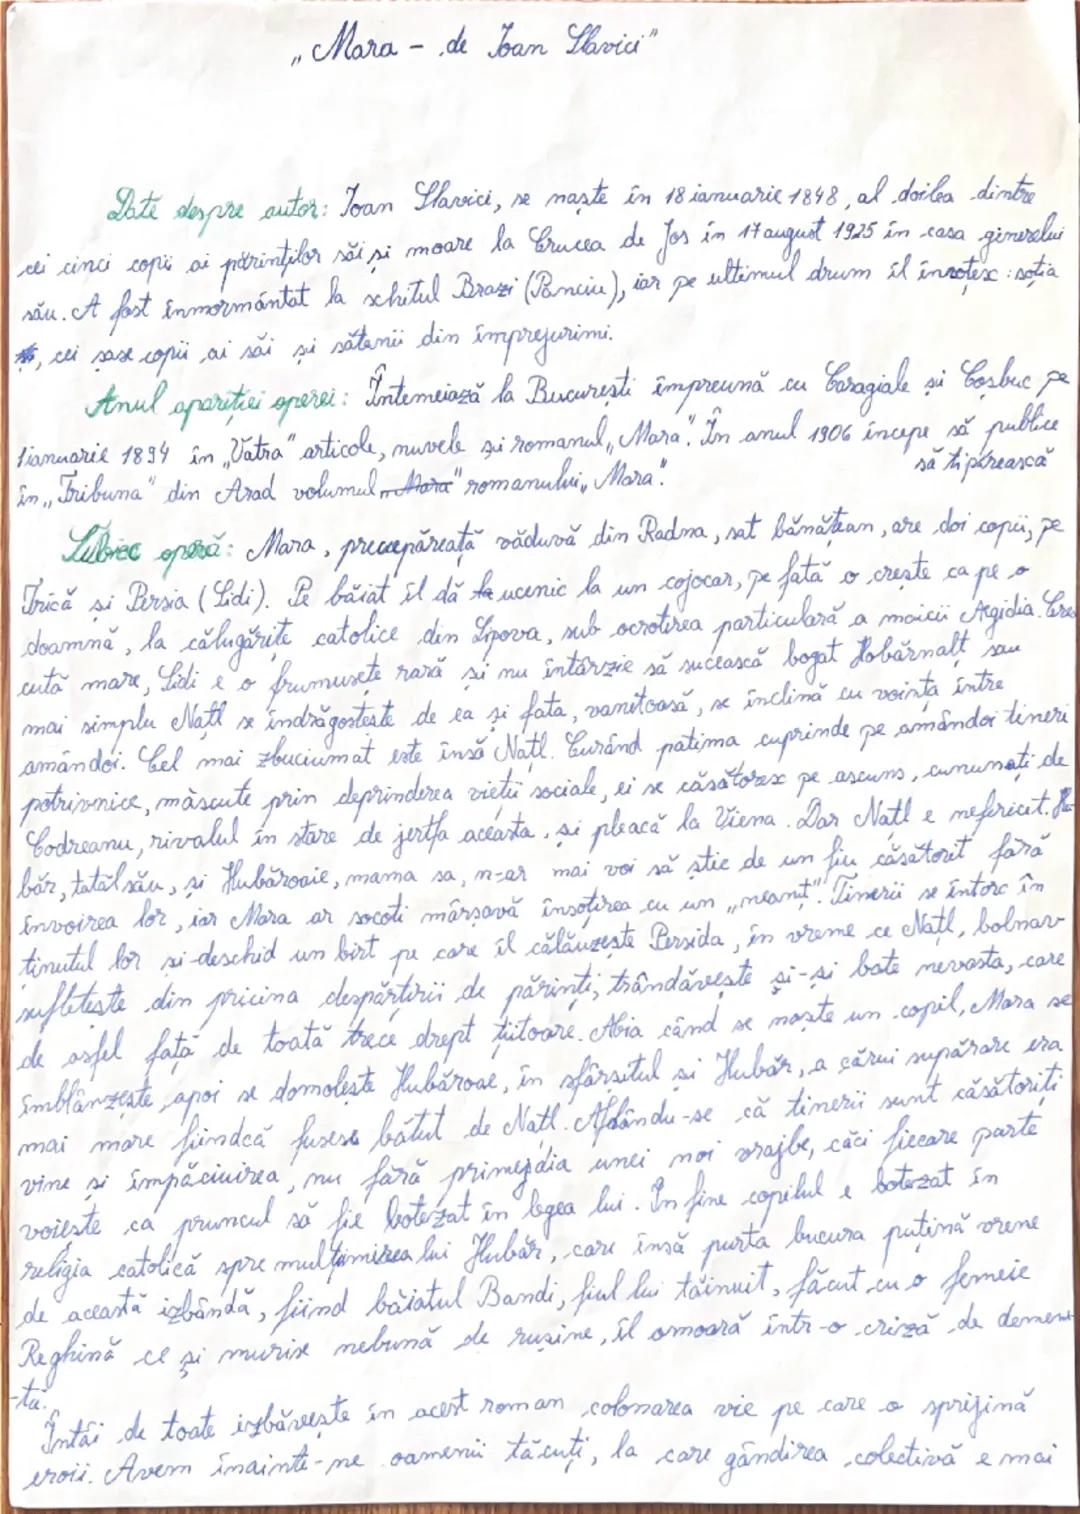 „Mara – de Ioan Slavici"
Date despre autor: Ioan Slavici, se naște în 18 ianuarie 1848, al doilea dintre
cei cinci copii ai părinților săi și moare la Crucea de Jos în 17 august 1925 în casa generelui
său. A fost înmormântat la schitul Brazi (Panciu), iar pe ultimul drum îl însoțesc: soția
, cei șase copii ai săi și sătenii din împrejurimi.
Anul apariției operei: Întemeiază la București împreună cu Caragiale și Coșbuc pe
1 ianuarie 1894 în „Vatra" articole, nuvele și romanul „Mara". În anul 1906 începe să publice
să tipărească
în „Tribuna" din Arad volumul „Mara" romanului „Mara".
Subiec operă: Mara, precepăreată văduvă din Radna, sat bănățean, are doi copii, pe
Trică și Persia (Sidi). Pe băiat îl dă la ucenic la un cojocar, pe fată o crește ca pe o
doamnă, la călugărițe catolice din Lipova, sub ocrotirea particulară a maicii Aegidia. Cres
cută mare, Sidi e o frumusețe rară și nu întârzie să sucească bogat Hobărnalt sau
mai simplu Natl se îndrăgostește de ea și fata, vanitoasă, se înclină cu voința între
amândoi. Cel mai zbuciumat este însă Națl. Curând patima cuprinde pe amândoi tineri
potrivnice, născute prin deprinderea vieții sociale, ei se căsătoresc pe ascuns, cununați de
Codreanu, rivalul în stare de jertfa aceasta, și pleacă la Viena. Dar Națl e nefericit. Hu
băr, tatăl său, și Hubăroaie, mama sa, n-ar mai voi să știe de un fiu căsătorit fără
învoirea lor, iar Mara ar socoti mârșavă însoțirea cu un „neamț". Tinerii se întorc în
ținutul lor și deschid un birt pe care îl călăuzește Persida, în vreme ce Națl, bolnav
sufletește din pricina despărțirii de părinți, trândăvește și-și bate nevasta, care
de astfel față de toată trece drept țiitoare. Abia când se naște un copil, Mara se
îmblânzește, apoi se domolește Hubăroae, în sfârșitul și Hubăr, a cărui supărare era
mai mare fiindcă fusese bătut de Națl. Aflându-se că tinerii sunt căsătoriți
vine și împăciuirea, nu fără primejdia unei noi vrajbe, căci fiecare parte
voiește ca pruncul să fie botezat în legea lui. În fine copilul e botezat în
religia catolică spre mulțumirea lui Hubăr, care însă purta bucura puțină vrene
de această izbândă, fiind băiatul Bandi, fiul lui tăinuit, făcut cu o femeie
Reghină ce și murise nebună de rușine, îl omoară într-o criză de demen
-ță.
Întâi de toate izbăvește în acest roman colonarea vie pe care o sprijină
eroii. Avem înainte-ne oamenii tăcuți, la care gândirea colectivă e mai